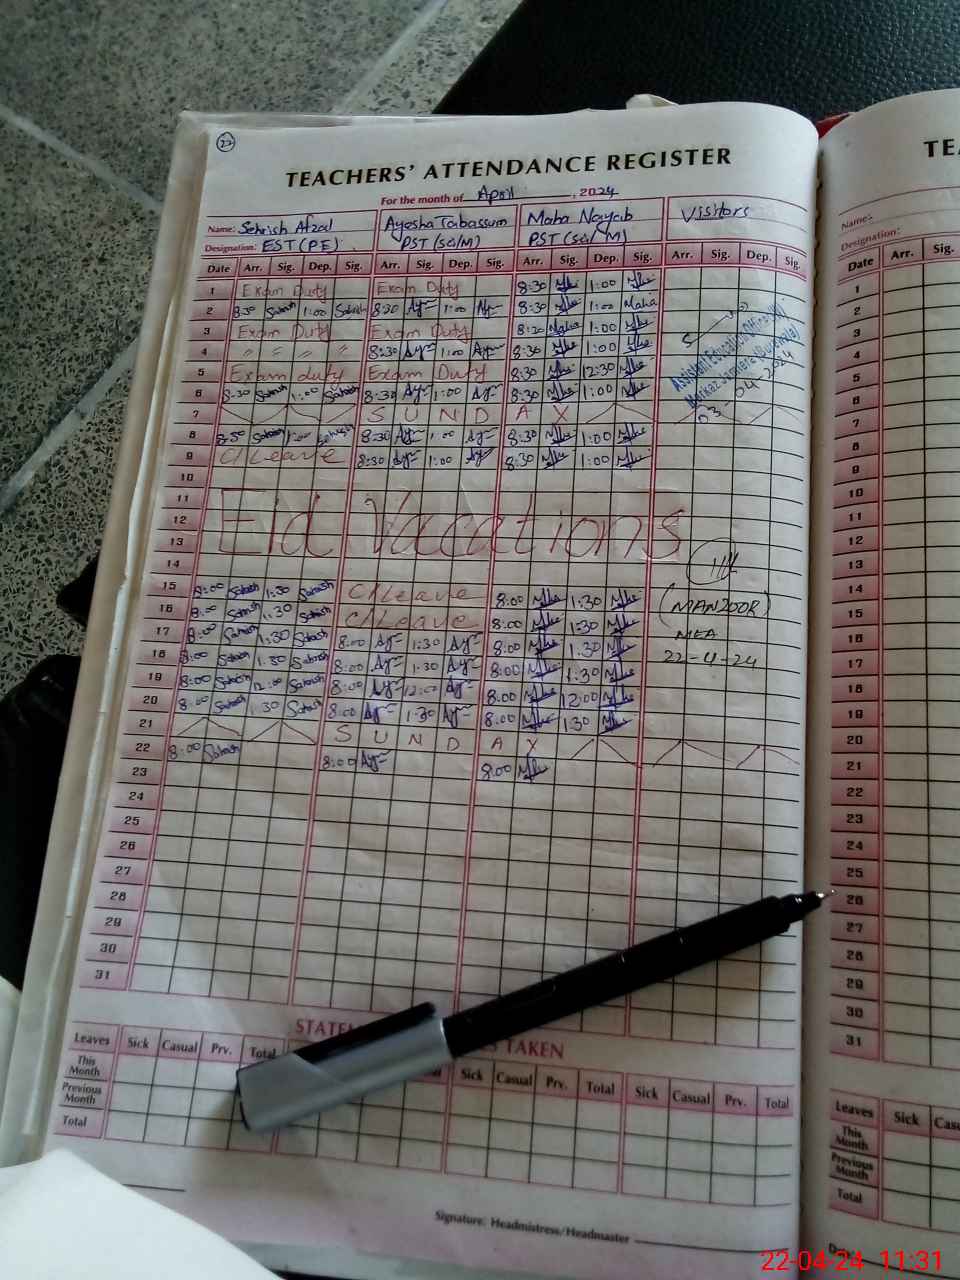 22
TEACHERS' ATTENDANCE REGISTER
For the month of April, 2024
Name: Sehrish Afzal Ayesha Tabassum Maha Nayab Visitors
Designation: EST (PE) PST (SG/M) PST (SG/M)
Date Arr. Sig. Dep. Sig. Arr. Sig. Dep. Sig. Arr. Sig. Dep. Sig. Arr. Sig. Dep. Sig.
1 Exam Duty Exam Duty 8:30 1:00
2 8:30 Sehrish 1:00 Sehrish 8:30 Ay 1:00 Ay 8:30 1:00 Maha
3 Exam Duty Exam Duty 8:30 Maha 1:00
4 " " " " 8:30 Ay 1:00 Ay 8:30 1:00
5 Exam duty Exam Duty 8:30 12:30
6 8:30 Sehrish 1:00 Sehrish 8:30 Ay 1:00 Ay 8:30 1:00
Assistant Education Officer (W)
03-04-2024
7 S U N D A Y
8 8:30 Sehrish 1:00 Sehrish 8:30 Ay 1:00 Ay 8:30 1:00
9 C/Leave 8:30 Ay 1:00 Ay 8:30 1:00
10
11
12 Eid Vacations
13
14
15 8:00 Sehrish 1:30 Sehrish C/Leave 8:00 1:30
16 8:00 Sehrish 1:30 Sehrish C/Leave 8:00 1:30
17 8:00 Sehrish 1:30 Sehrish 8:00 Ay 1:30 Ay 8:00 1:30
18 8:00 Sehrish 1:30 Sehrish 8:00 Ay 1:30 Ay 8:00 1:30
19 8:00 Sehrish 12:00 Sehrish 8:00 Ay 12:00 Ay 8:00 12:00
20 8:00 Sehrish 1:30 Sehrish 8:00 Ay 1:30 Ay 8:00 1:30
(MANZOOR)
MEA
22-4-24
21 S U N D A Y
22 8:00 Sehrish 8:00 Ay 8:00
23
24
25
26
27
28
29
30
31
TAKEN
Leaves Sick Casual Prv. Total Sick Casual Prv. Total Sick Casual Prv. Total
This Month
Previous Month
Total
Signature: Headmistress/Headmaster
Name:-
Designation:
Date Arr. Sig.
1
2
3
4
5
6
7
8
9
10
11
12
13
14
15
16
17
18
19
20
21
22
23
24
25
26
27
28
29
30
31
Leaves Sick
This Month
Previous Month
Total
22-04-24 11:31